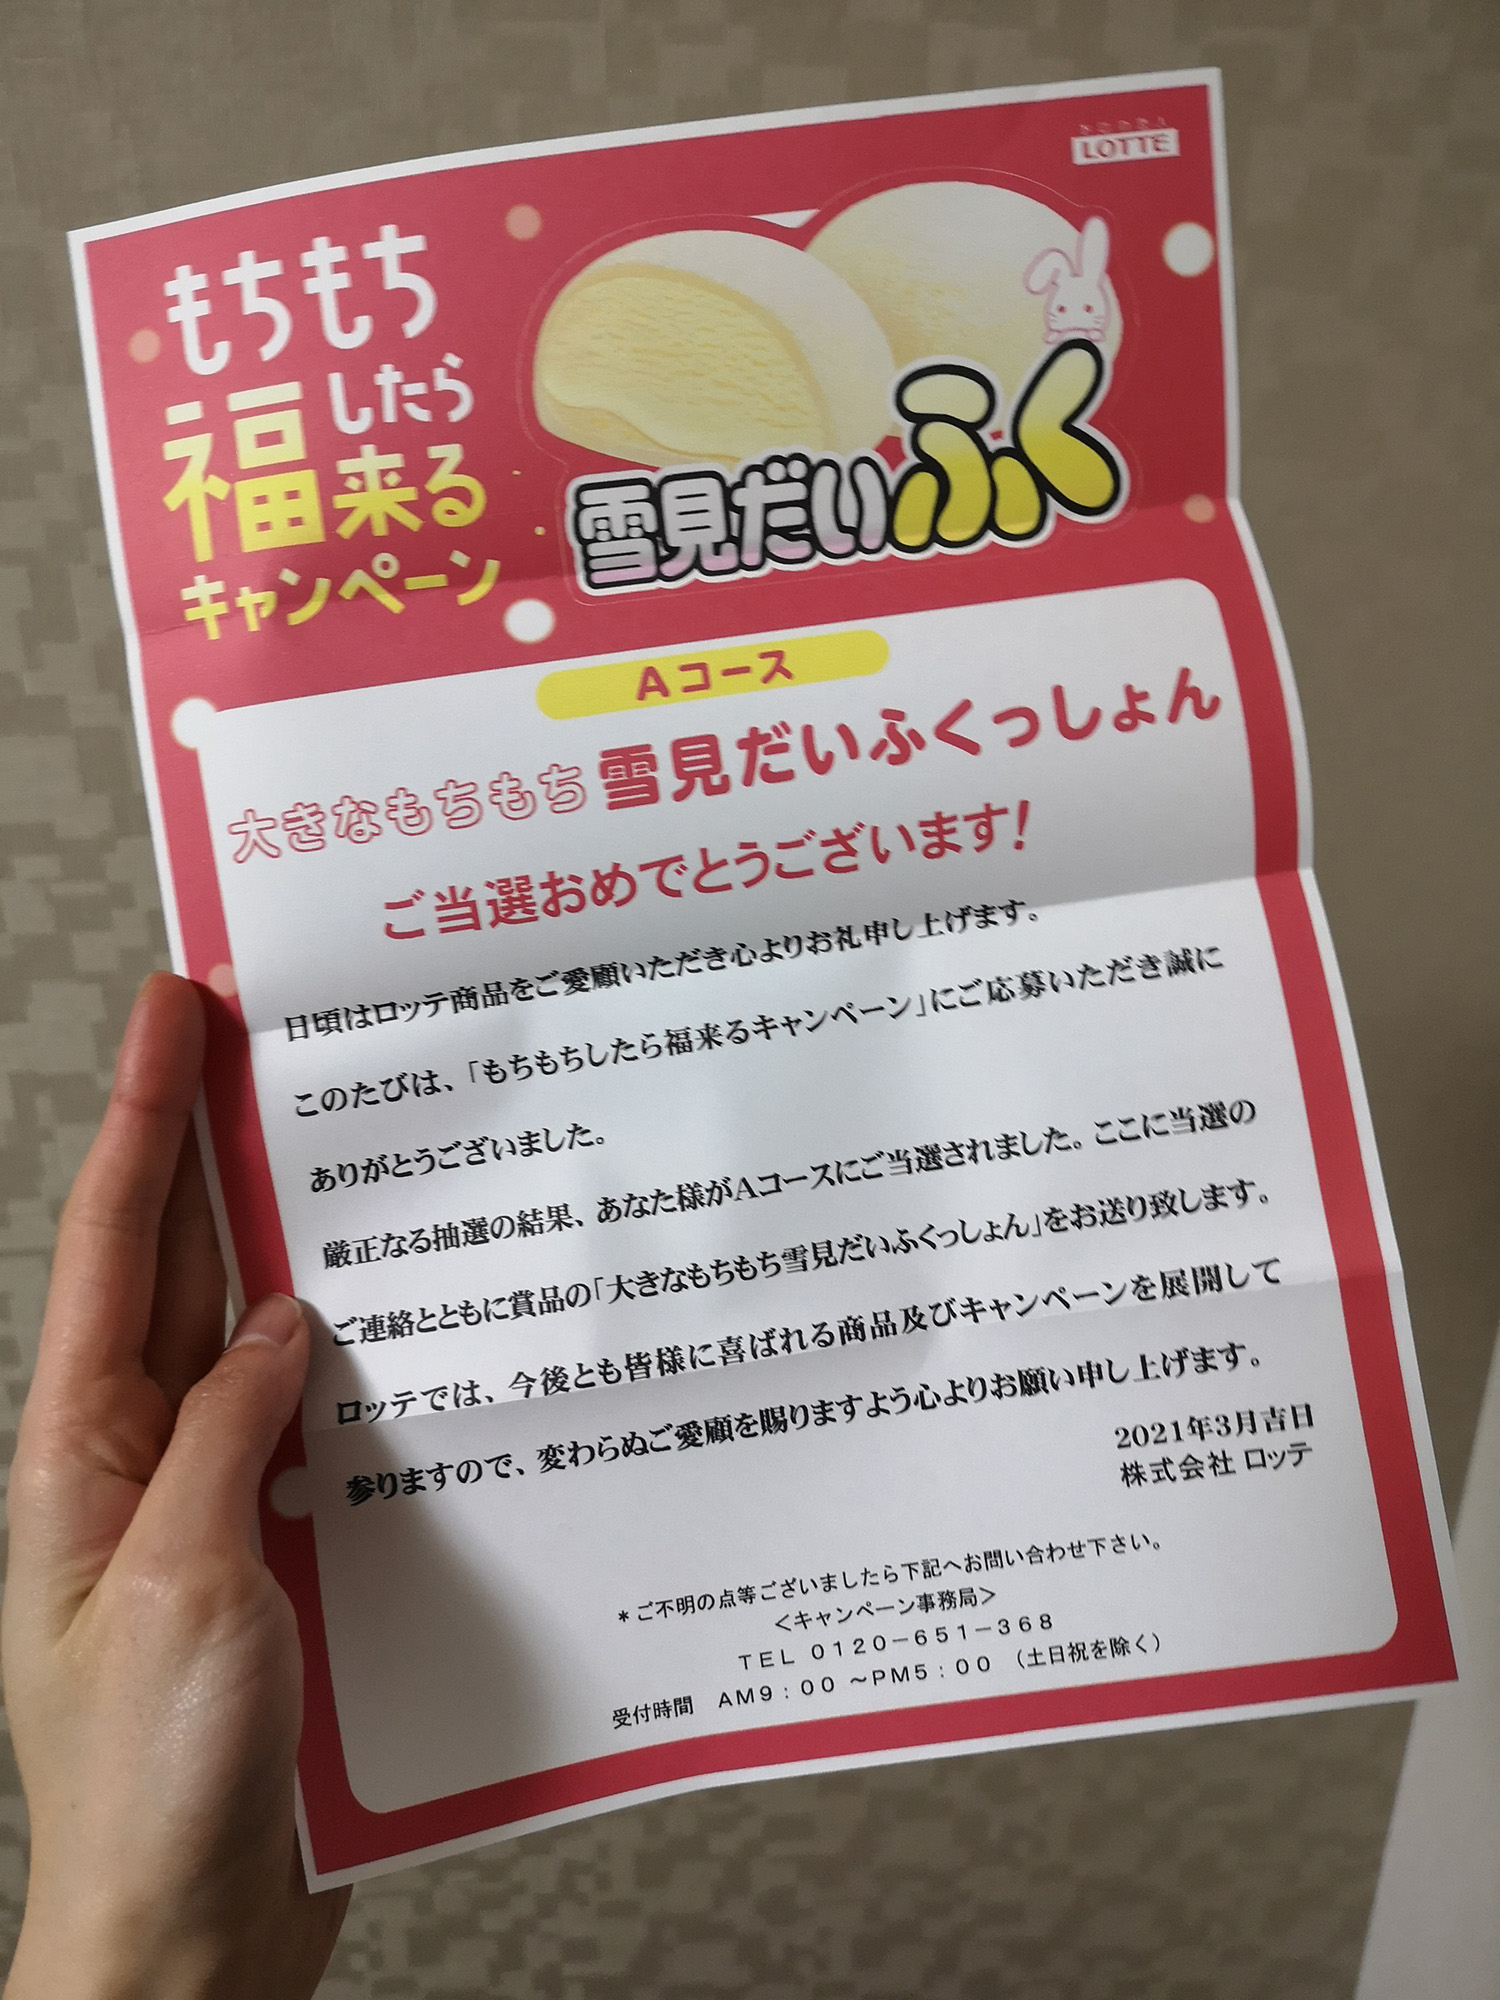 LOTTE
もちもち
したら
福来る
キャンペーン
雪見だいふく
Aコース
大きなもちもち雪見だいふくっしょん
ご当選おめでとうございます!
日頃はロッテ商品をご愛顧いただき心よりお礼申し上げます。
このたびは、「もちもちしたら福来るキャンペーン」にご応募いただき誠に
ありがとうございました。
厳正なる抽選の結果、あなた様がAコースにご当選されました。ここに当選の
ご連絡とともに賞品の「大きなもちもち雪見だいふくっしょん」をお送り致します。
ロッテでは、今後とも皆様に喜ばれる商品及びキャンペーンを展開して
参りますので、変わらぬご愛顧を賜りますよう心よりお願い申し上げます。
2021年3月吉日
株式会社 ロッテ
*ご不明の点等ございましたら下記へお問い合わせ下さい。
<キャンペーン事務局>
TEL 0120-651-368
受付時間 AM9:00 ~PM5:00 (土日祝を除く)